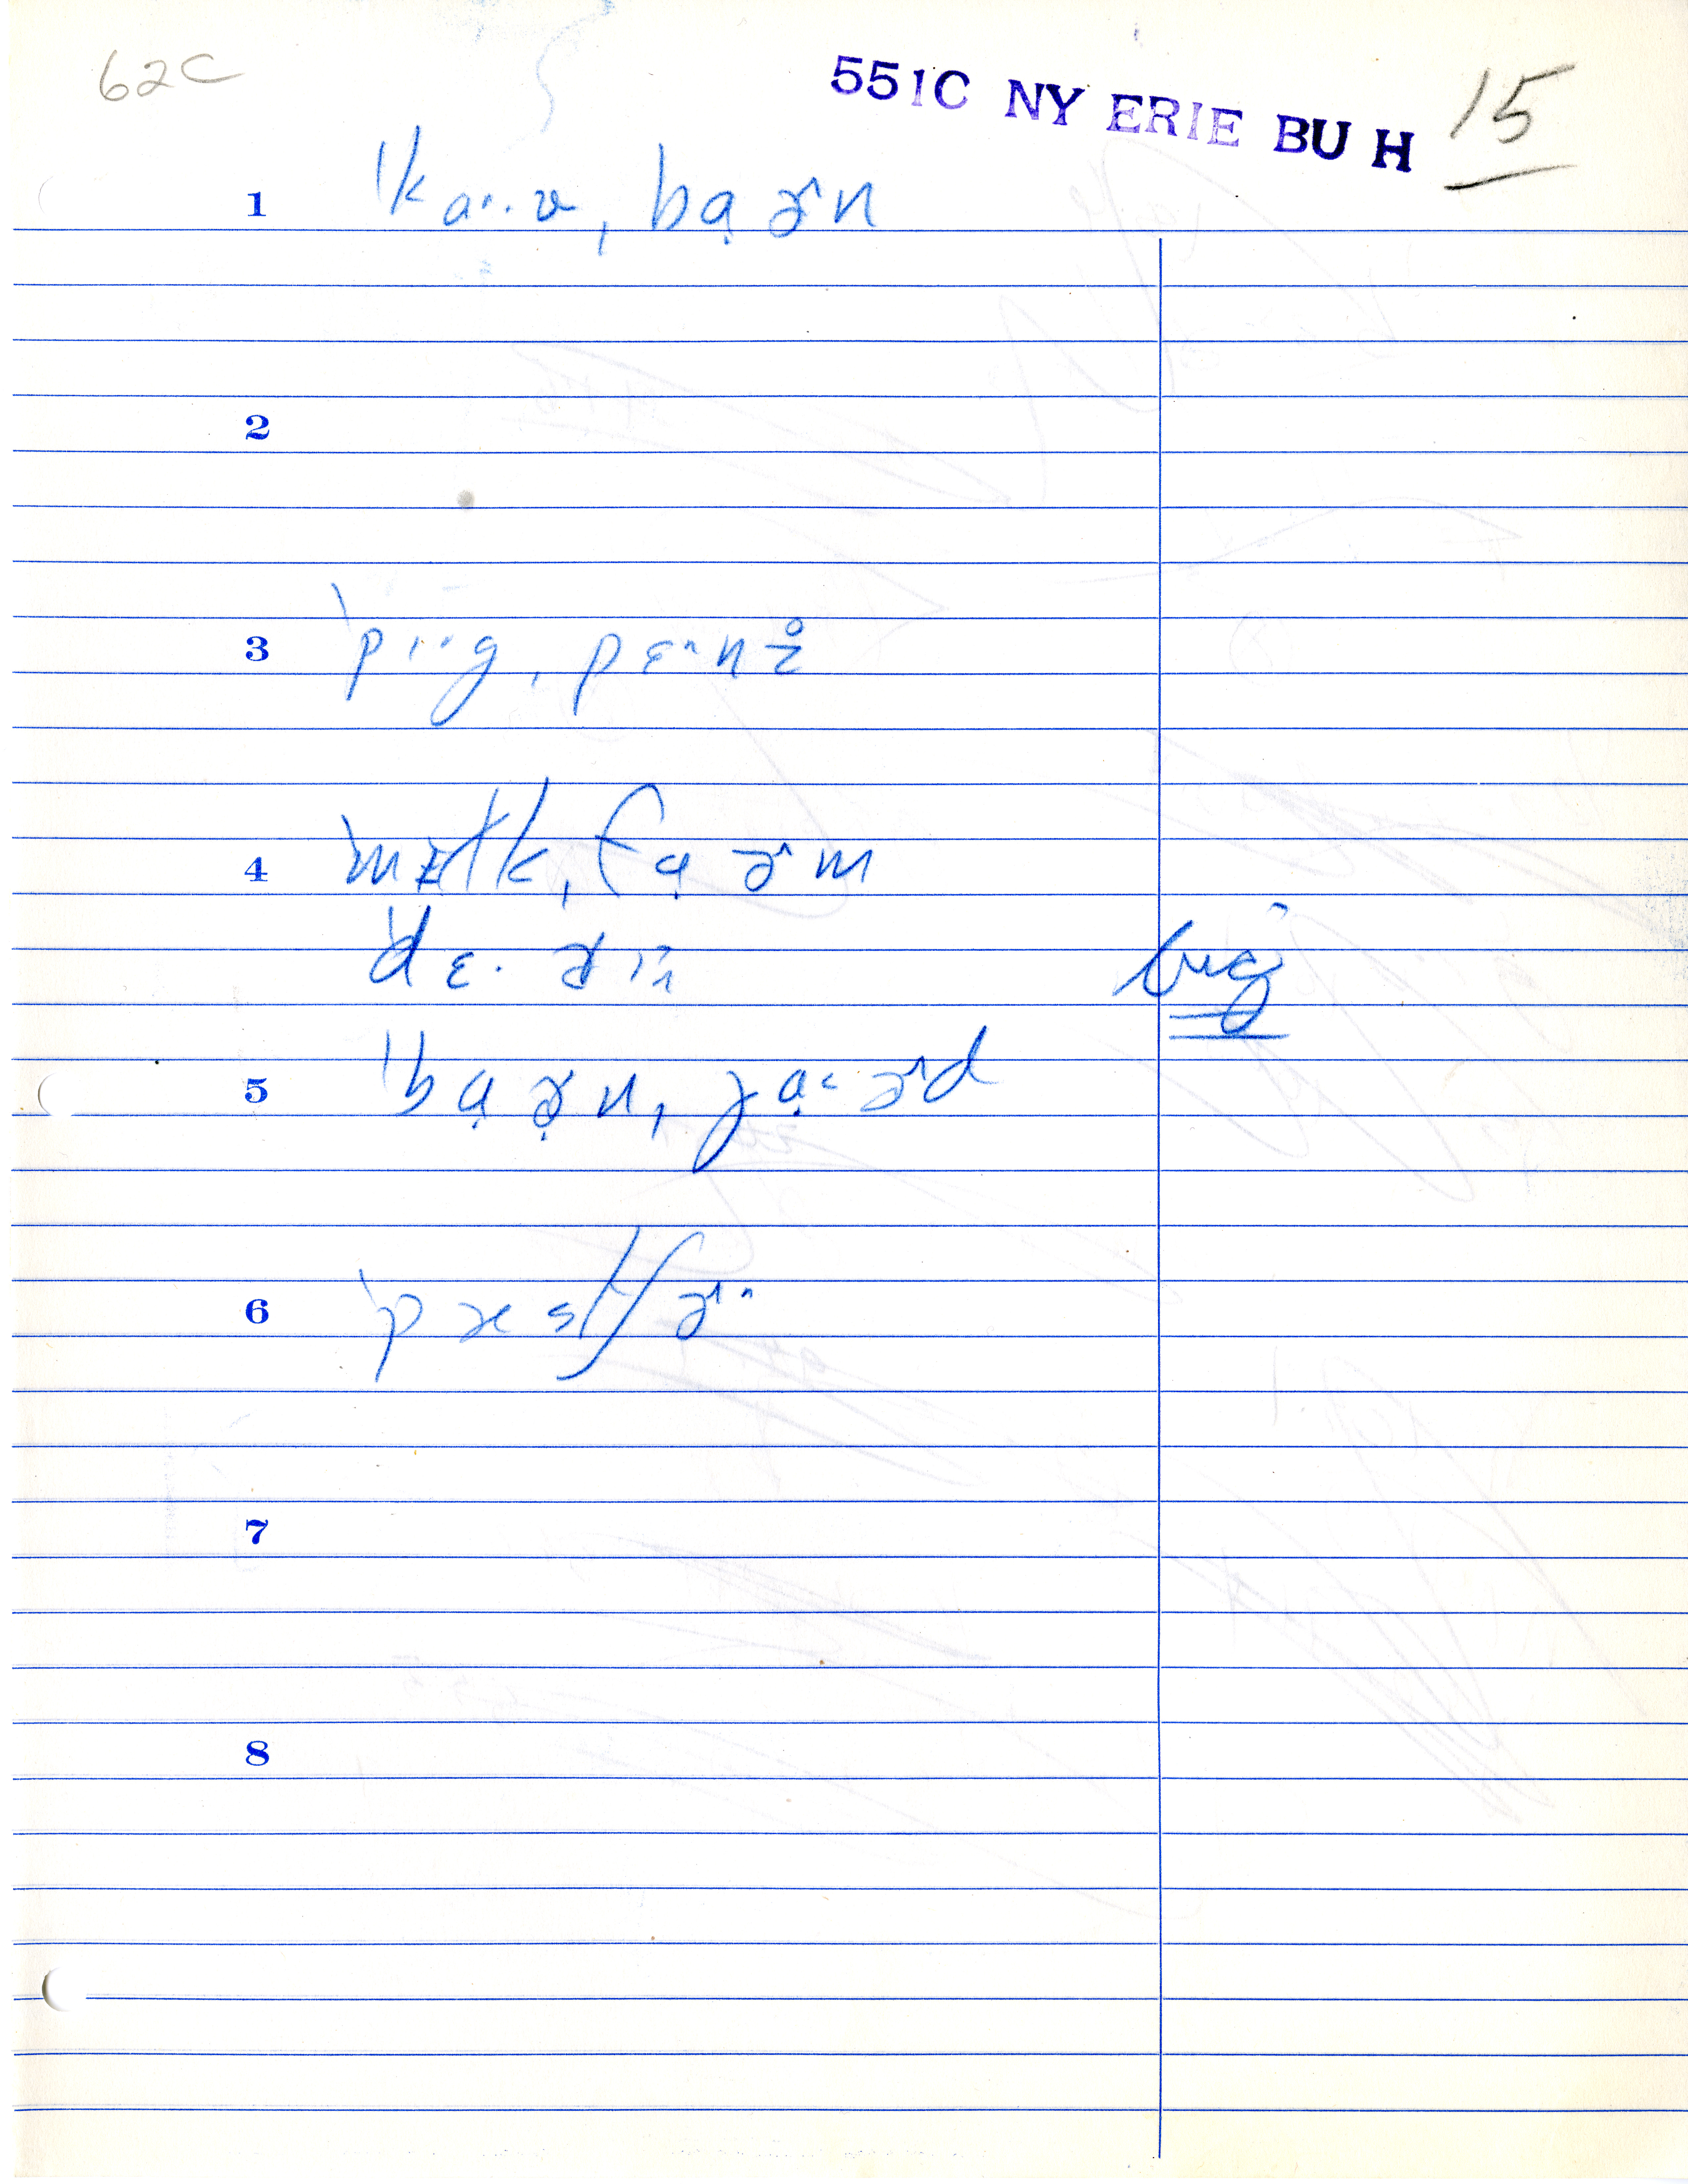 62C
551C NY ERIE BU H 15
1 ˈka·ʊ, bạɚn
2
3 ˈpɪ·g, pɛ·n
4 ˈmɪlk, fạɚm
ˈdɛ·
5 ˈbạɚn, jạ·ɚd
6 ˈpæstʃɚ
7
8